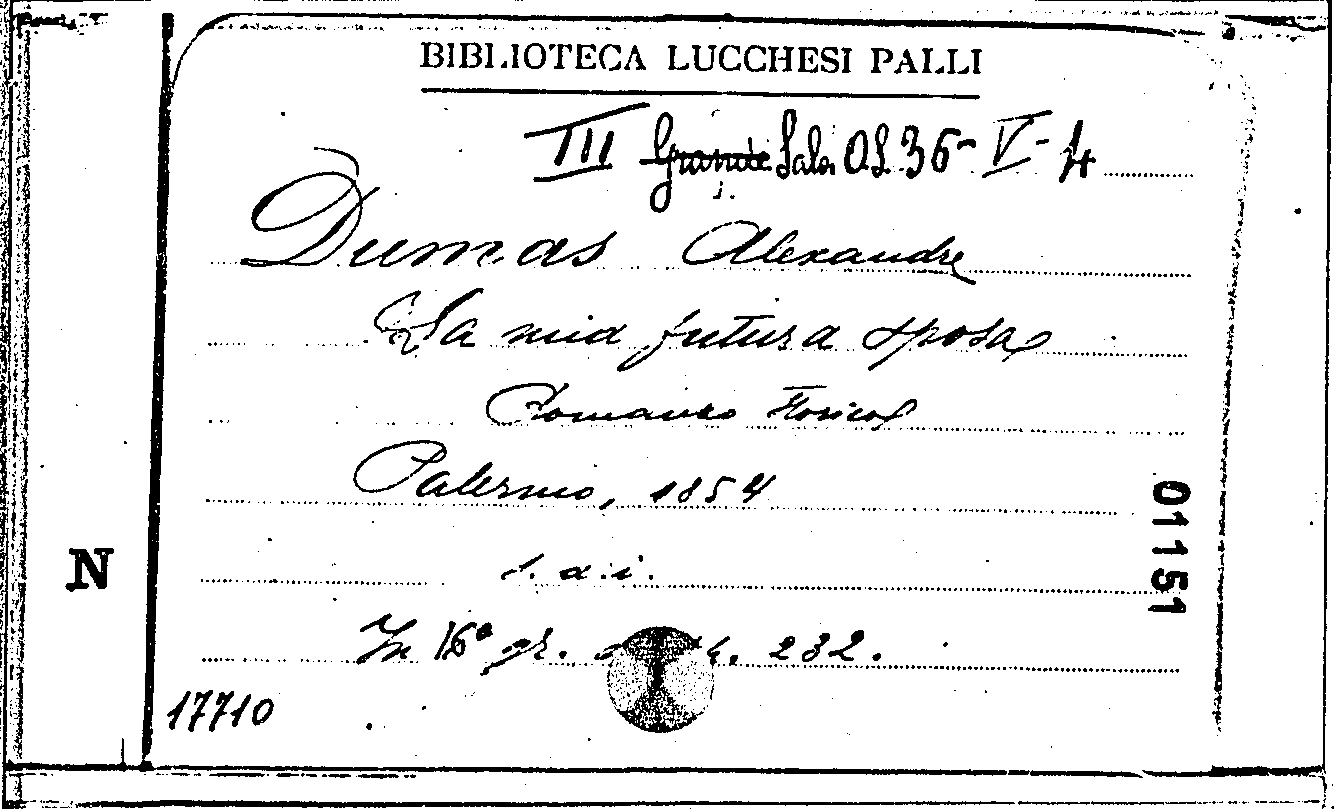 BIBLIOTECA LUCCHESI PALLI
III Grande Sala O.S. 36-V-4
Dumas Alexandre
La mia futura sposa
Romanzo storico
Palermo, 1854
s. d. i.
In 16° gr. 232.
17710
N
01151